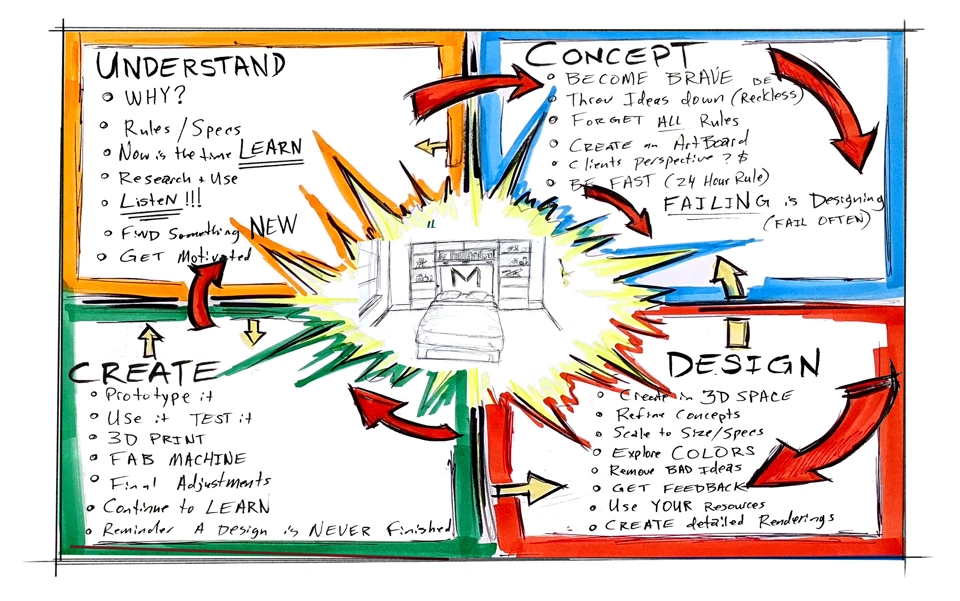 UNDERSTAND
WHY?
Rules/Specs
Now is the time LEARN
Research + Use
Listen!!!
FIND Something NEW
GET Motivated
CONCEPT
BECOME BRAVE
Throw Ideas down (Reckless)
FORGET ALL Rules
CREATE an ArtBoard
Clients perspective ? $
BE FAST (24 Hour Rule)
FAILING is Designing
(FAIL OFTEN)
M
CREATE
Prototype it
Use it TEST it
3D PRINT
FAB MACHINE
Final Adjustments
Continue to LEARN
Reminder A Design is NEVER Finished
DESIGN
Create in 3D SPACE
Refine Concepts
Scale to Size/Specs
Explore COLORS
Remove BAD Ideas
GET FEEDBACK
Use YOUR Resources
CREATE detailed Renderings